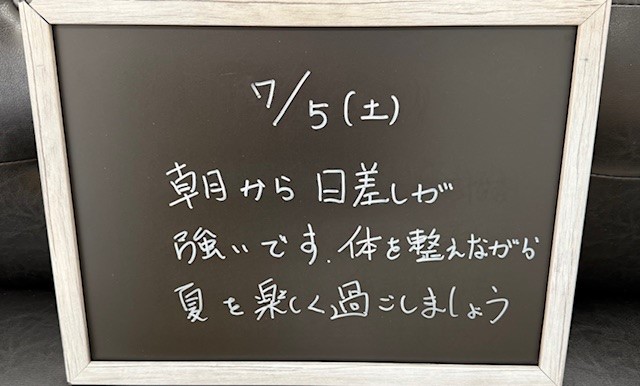 7/5(土)
朝から日差しが
強いです.体を整えながら
夏を楽しく過ごしましょう